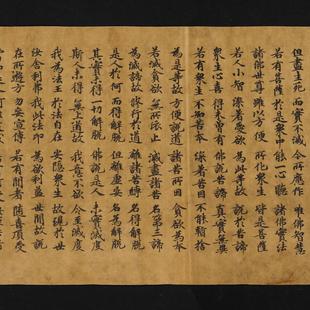 但盡生死 而實不滅 今所應作 唯佛智慧
若有菩薩 於是衆中 能一心聽 諸佛實法
諸佛世尊 雖以方便 所化衆生 皆是菩薩
若人小智 深著愛欲 為此等故 說於苦諦
衆生心喜 得未曾有 佛說苦諦 真實無異
若有衆生 不知苦本 深著苦因 不能暫捨
為是等故 方便說道 諸苦所因 貪欲為本
若滅貪欲 無所依止 滅盡諸苦 名第三諦
為滅諦故 修行於道 離諸苦縛 名得解脫
是人於何 而得解脫 但離虛妄 名為解脫
其實未得 一切解脫 佛說是人 未實滅度
斯人未得 無上道故 我意不欲 令至滅度
我為法王 於法自在 安隱衆生 故現於世
汝舍利弗 我此法印 為欲利益 世間故說
在所遊方 勿妄宣傳 若有聞者 隨喜頂受